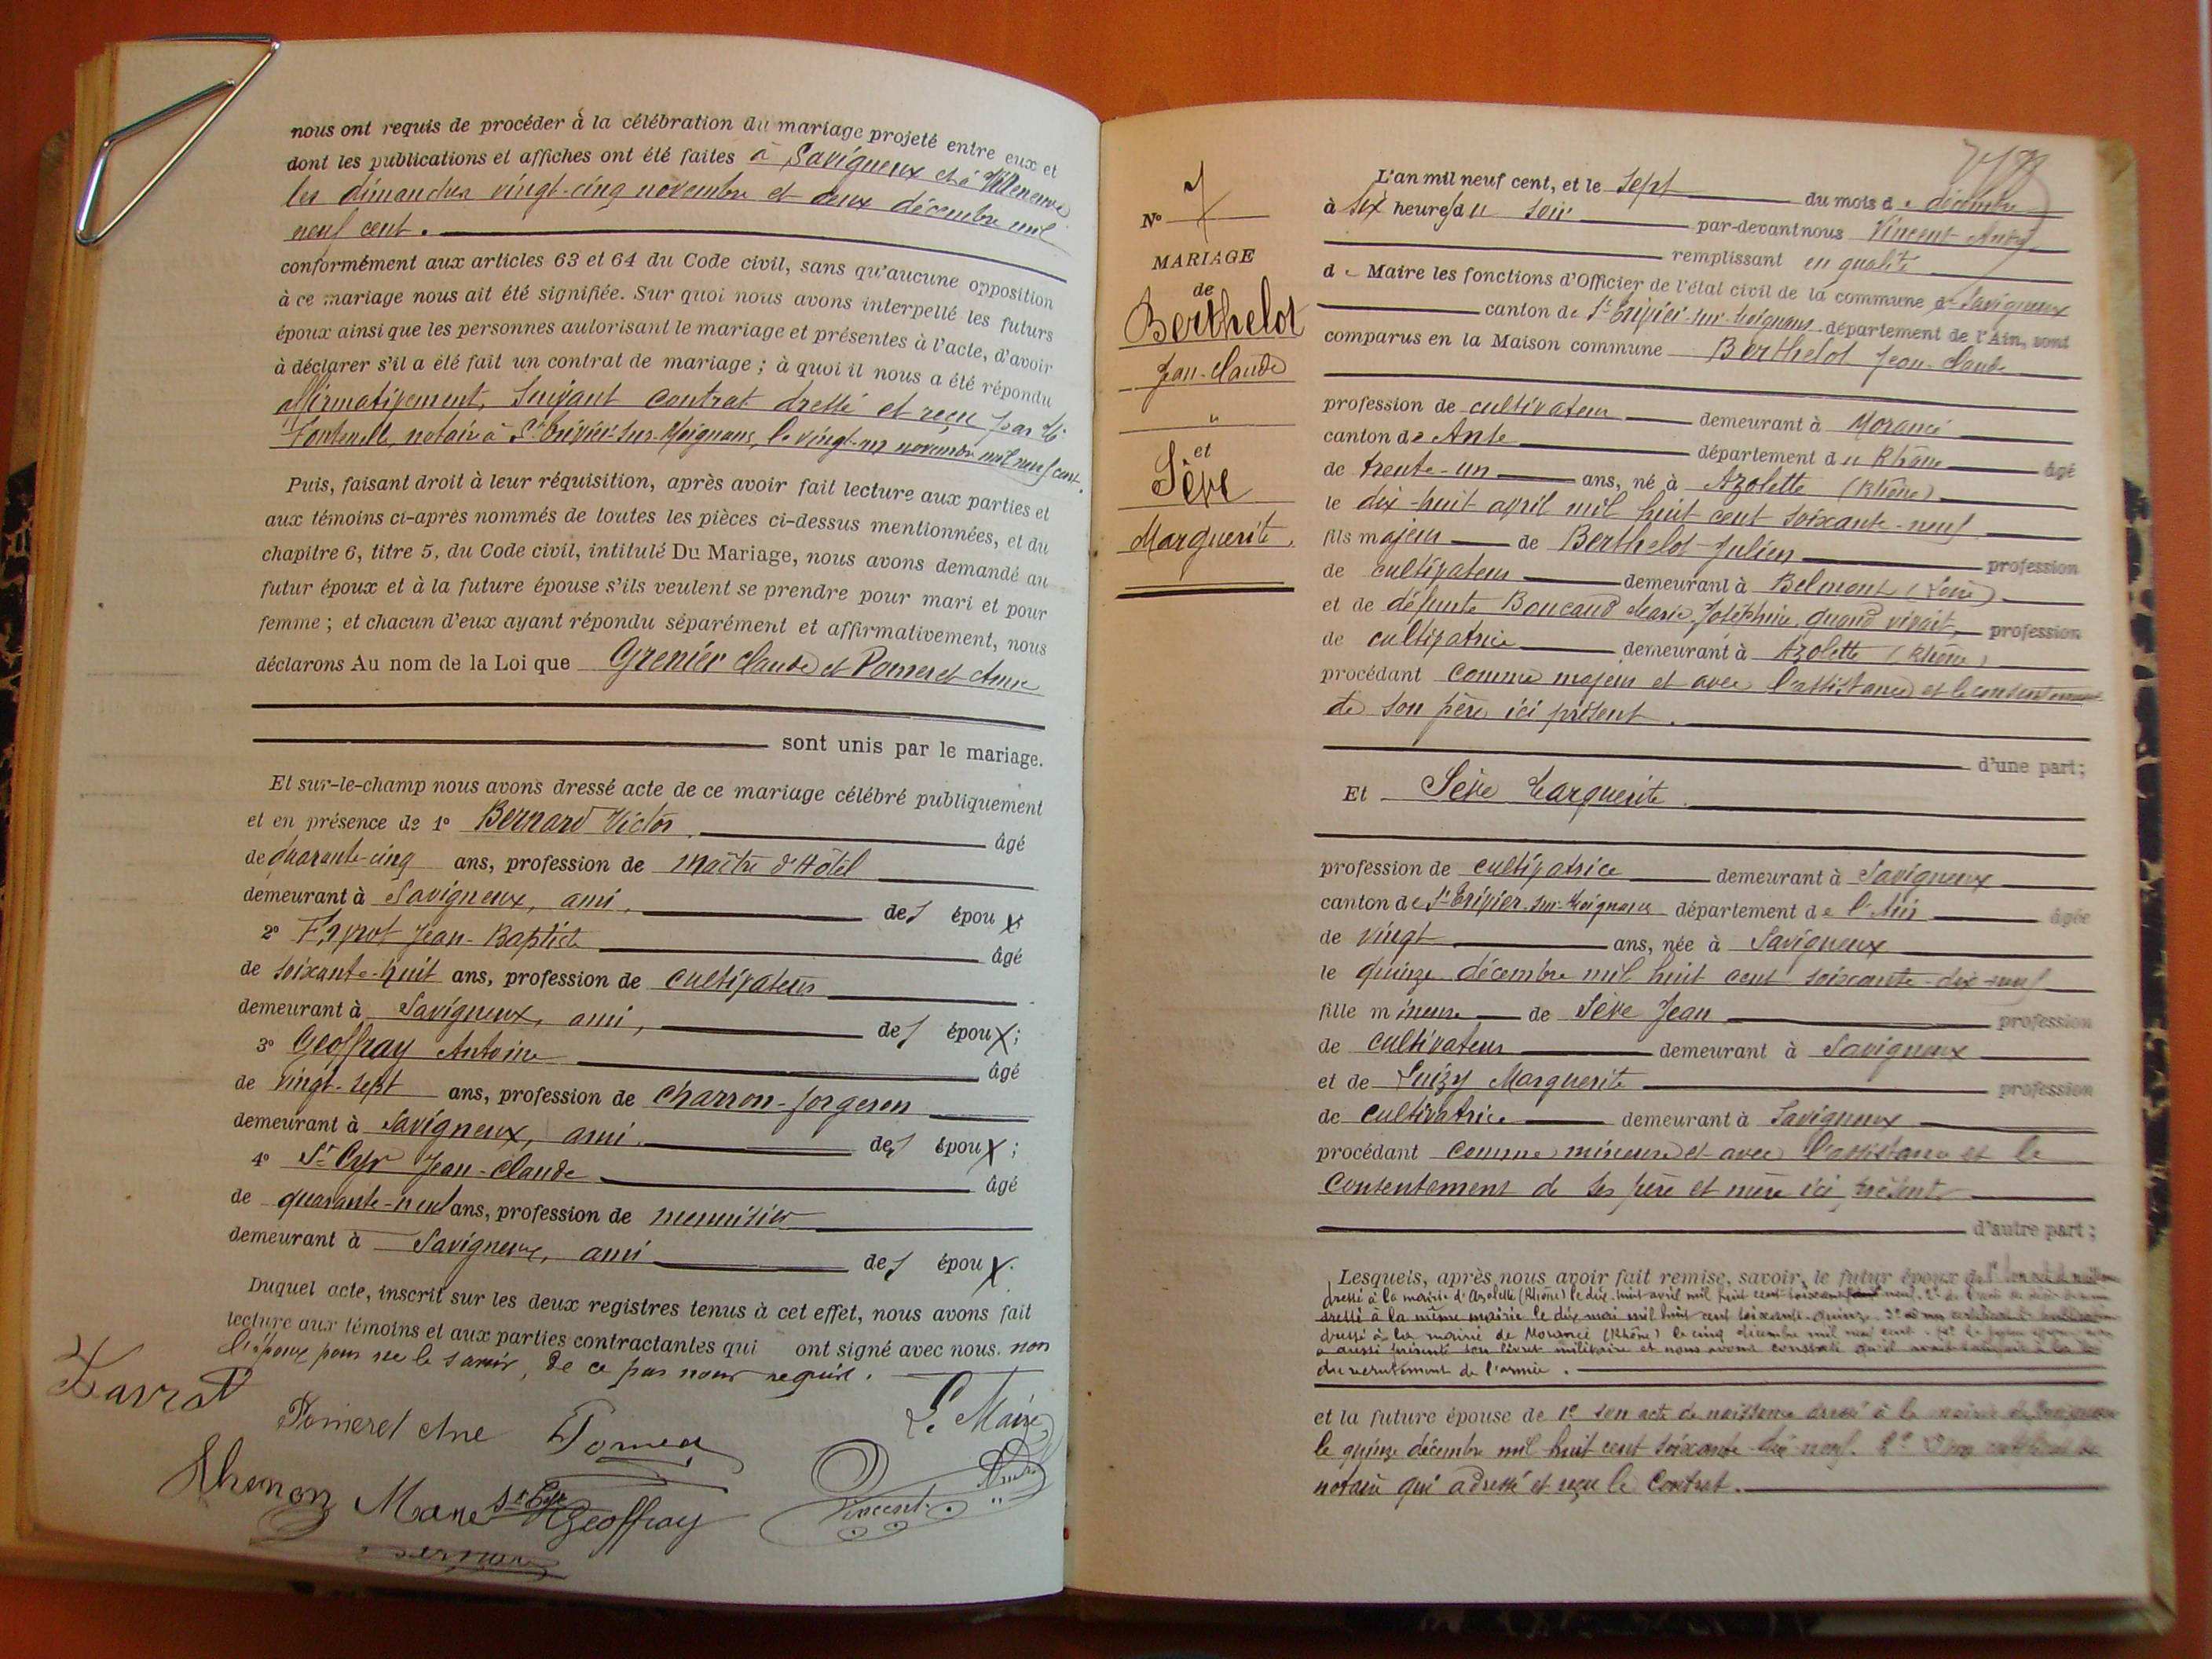 nous ont requis de procéder à la célébration du mariage projeté entre eux et
dont les publications et affiches ont été faites à Savigneux et à Villeneuve
les dimanches vingt-cinq novembre et deux décembre mil
neuf cent.
conformément aux articles 63 et 64 du Code civil, sans qu'aucune opposition
à ce mariage nous ait été signifiée. Sur quoi nous avons interpellé les futurs
époux ainsi que les personnes autorisant le mariage et présentes à l'acte, d'avoir
à déclarer s'il a été fait un contrat de mariage ; à quoi il nous a été répondu
affirmativement, suivant contrat dressé et reçu par Me
Fontenelle, notaire à St Trivier-sur-Moignans, le vingt-un novembre mil neuf cent.
Puis, faisant droit à leur réquisition, après avoir fait lecture aux parties et
aux témoins ci-après nommés de toutes les pièces ci-dessus mentionnées, et du
chapitre 6, titre 5, du Code civil, intitulé Du Mariage, nous avons demandé au
futur époux et à la future épouse s'ils veulent se prendre pour mari et pour
femme ; et chacun d'eux ayant répondu séparément et affirmativement, nous
déclarons Au nom de la Loi que Grenier Claude et Pomeret Anne
sont unis par le mariage.
Et sur-le-champ nous avons dressé acte de ce mariage célébré publiquement
et en présence de 1° Bernard Victor. âgé
de quarante-cinq ans, profession de maître d'Hôtel
demeurant à Savigneux, ami, des époux
2° Jean-Baptiste âgé
de soixante-huit ans, profession de cultivateur
demeurant à Savigneux, ami, des époux ;
3° Geoffray Antoine âgé
de vingt-sept ans, profession de charron-forgeron
demeurant à Savigneux, ami. des époux ;
4° St Cyr Jean-Claude âgé
de quarante-neuf ans, profession de menuisier
demeurant à Savigneux, ami des époux.
Duquel acte, inscrit sur les deux registres tenus à cet effet, nous avons fait
lecture aux témoins et aux parties contractantes qui ont signé avec nous. non
l'époux pour ne le savoir, de ce par nous requis.
Pomeret Ane
Le Maire
Thenon Marie St Cyr Geoffray
Vincent
Bernard
N° 7
MARIAGE
de
Berthelot
Jean-Claude
"
et
Sève
Marguerite.
L'an mil neuf cent, et le sept du mois de décembre
à six heures du soir par-devant nous Vincent André
remplissant en qualité
de Maire les fonctions d'Officier de l'état civil de la commune de Savigneux
canton de St Trivier-sur-Moignans département de l'Ain, sont
comparus en la Maison commune Berthelot Jean-Claude
profession de cultivateur demeurant à Morancé
canton de Anse département du Rhône âgé
de trente-un ans, né à Azolette (Rhône)
le dix-huit avril mil huit cent soixante-neuf
fils majeur de Berthelot Julien profession
de cultivateur demeurant à Belmont (Loire)
et de défunte Boucaud Marie Joséphine, quand vivait, profession
de cultivatrice demeurant à Azolette (Rhône)
procédant comme majeur et avec l'assistance et le consentement
de son père ici présent.
d'une part ;
Et Sève Marguerite.
profession de cultivatrice demeurant à Savigneux
canton de St Trivier-sur-Moignans département de l'Ain âgée
de vingt ans, née à Savigneux
le quinze décembre mil huit cent soixante-dix-neuf
fille mineure de Sève Jean profession
de cultivateur demeurant à Savigneux
et de Luizy Marguerite profession
de cultivatrice demeurant à Savigneux
procédant comme mineure et avec l'assistance et le
consentement de ses père et mère ici présents
d'autre part ;
Lesquels, après nous avoir fait remise, savoir, le futur époux de
dressé à la mairie d'Azolette (Rhône) le dix-huit avril mil huit cent soixante neuf. 2°
dressé à la même mairie le dix mai mil huit cent soixante-quinze. 3°
dressé à la mairie de Morancé (Rhône) le cinq décembre mil neuf cent.
a aussi présenté son livret militaire et nous avons constaté qu'il avait satisfait à la loi
du recrutement de l'armée.
et la future épouse de 1° son acte de naissance dressé à la mairie de Savigneux
le quinze décembre mil huit cent soixante dix-neuf. 2° D'un certificat du
notaire qui a dressé et reçu le contrat.